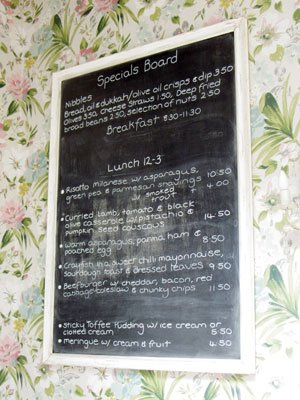 Specials Board
Nibbles
Bread, oil & dukkah/olive oil crisps & dip 3.50
Olives 3.50, Cheese Straws 1.50, Deep fried
broad beans 2.50, selection of nuts 2.50
Breakfast 8.30-11.30
Lunch 12-3
• Risotto Milanese w/ asparagus, 10.50
green pea & parmesan shavings +
w/ smoked trout 4.00
• Curried Lamb, tomato & black
olive casserole w/ pistachio & 14.50
pumpkin seed couscous
• Warm asparagus, parma ham &
poached egg 8.50
• Crayfish in a sweet chili mayonnaise,
sourdough toast & dressed leaves 9.50
• Beefburger w/ cheddar, bacon, red
cabbage coleslaw & chunky chips 11.50
• Sticky Toffee Pudding w/ ice cream or
clotted cream 5.50
• Meringue w/ cream & fruit 4.50